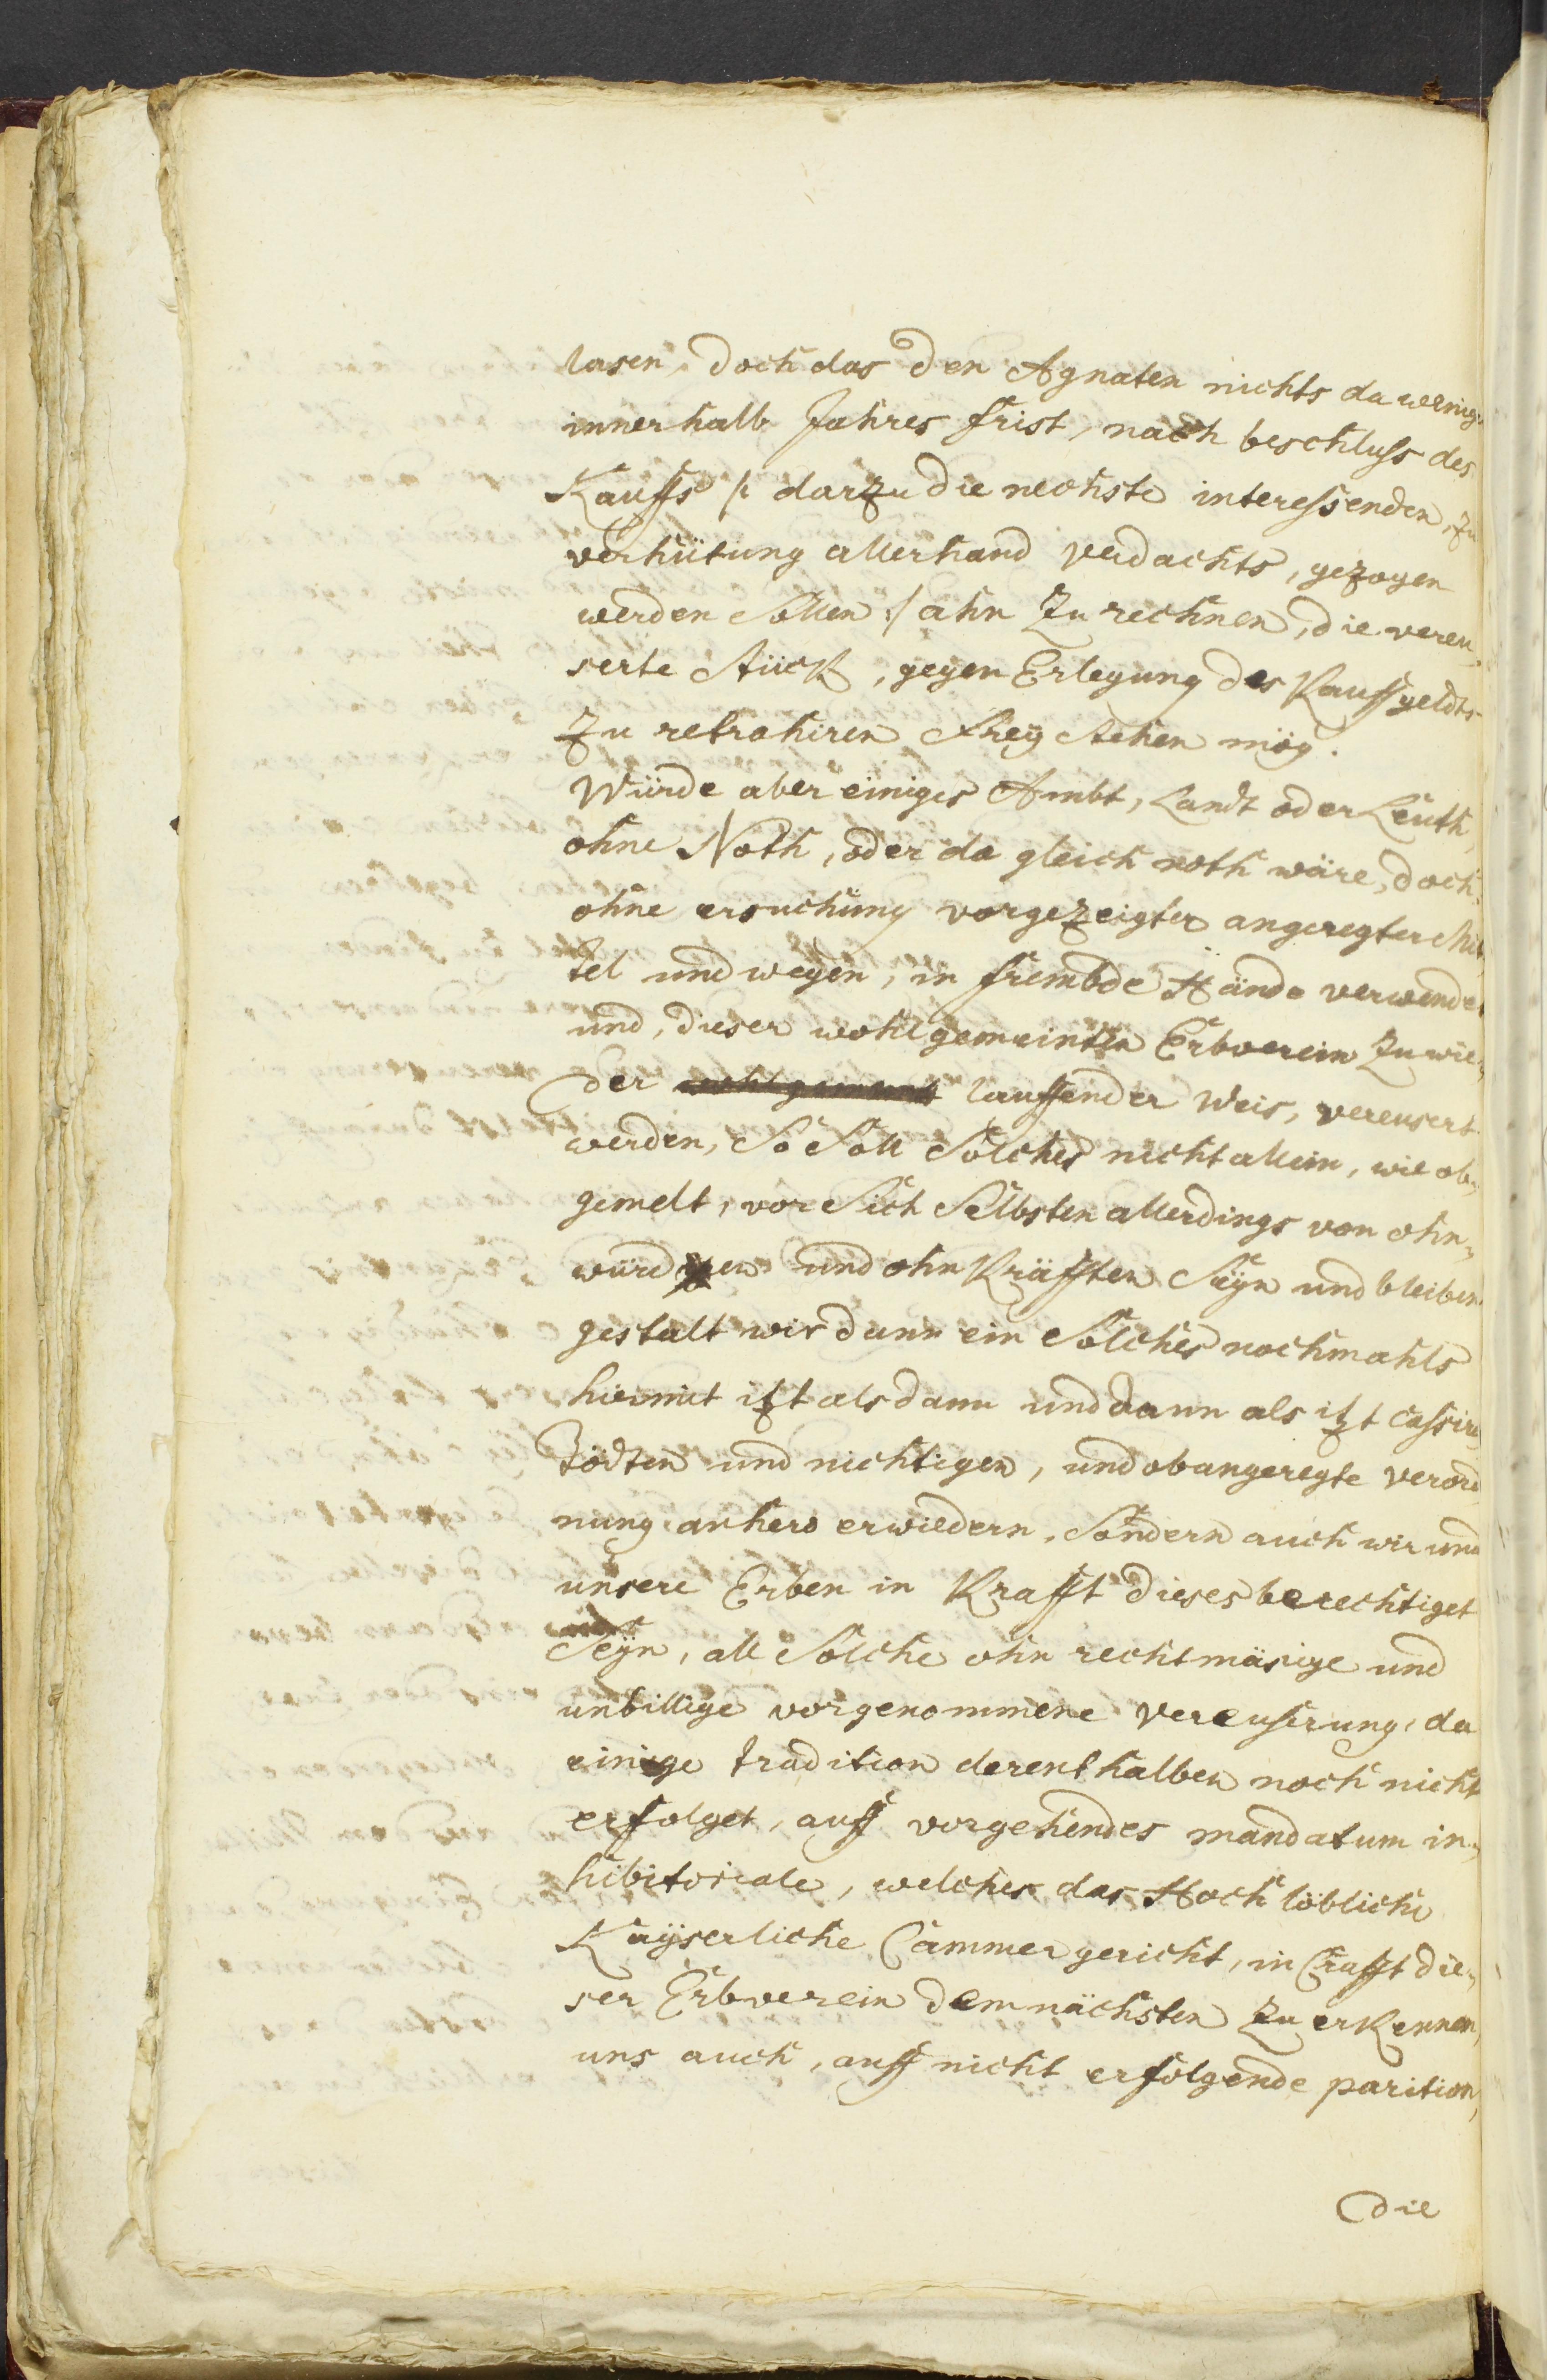 lasen, doch das den Agnaten nichts da wenig
innerhalb Jahres frist, nach beschluss des
Kauffs /: darzu die nechste interessenden, zu
verhütung allerhand verdachts, gezogen
werden sollen :/ ahn zu rechnen, die vereu„
serte stück, gegen Erlegung des Kauffgeldts
zu retrahiren frey stehen mög.
Würde aber einiges Ambt, Landt oder Leuth,
ohne Noth, oder da gleich noth wäre, doch
ohne ersuchung vorgezeigter angeregter mit„
tel und wegen, in frembde Hände verwendet
und, dieser wohlgemeinten Erbverein zu wie„
der lauffender Weis, vereusert
werden, So Soll Solches nicht allein, wie ob„
gemelt, vor Sich Selbsten allerdings von ohn„
würden und ohn Kräfften Seyn und bleiben
gestalt wir dann ein Solches nochmahls
hiermit itzt als dann und dann als itzt cassire„
Tödten und nichtigen, und obangeregte verord„
nung anhero erwiedern, Sondern auch wir und
unsere Erben in Krafft dieses berechtiget
Seyn, all Solche ohn rechtmäsige und
unbillige vorgenommene Vereuserung, da
einige tradition derenthalben noch nicht
erfolget, auff vorgehendes mandatum in„
hibitoriale, welches das Hochlöbliche
Kayserliche Cammergericht, in Crafft die„
ser Erbverein demnächsten zu erkennen,
uns auch, auff nicht erfolgende parition,
die